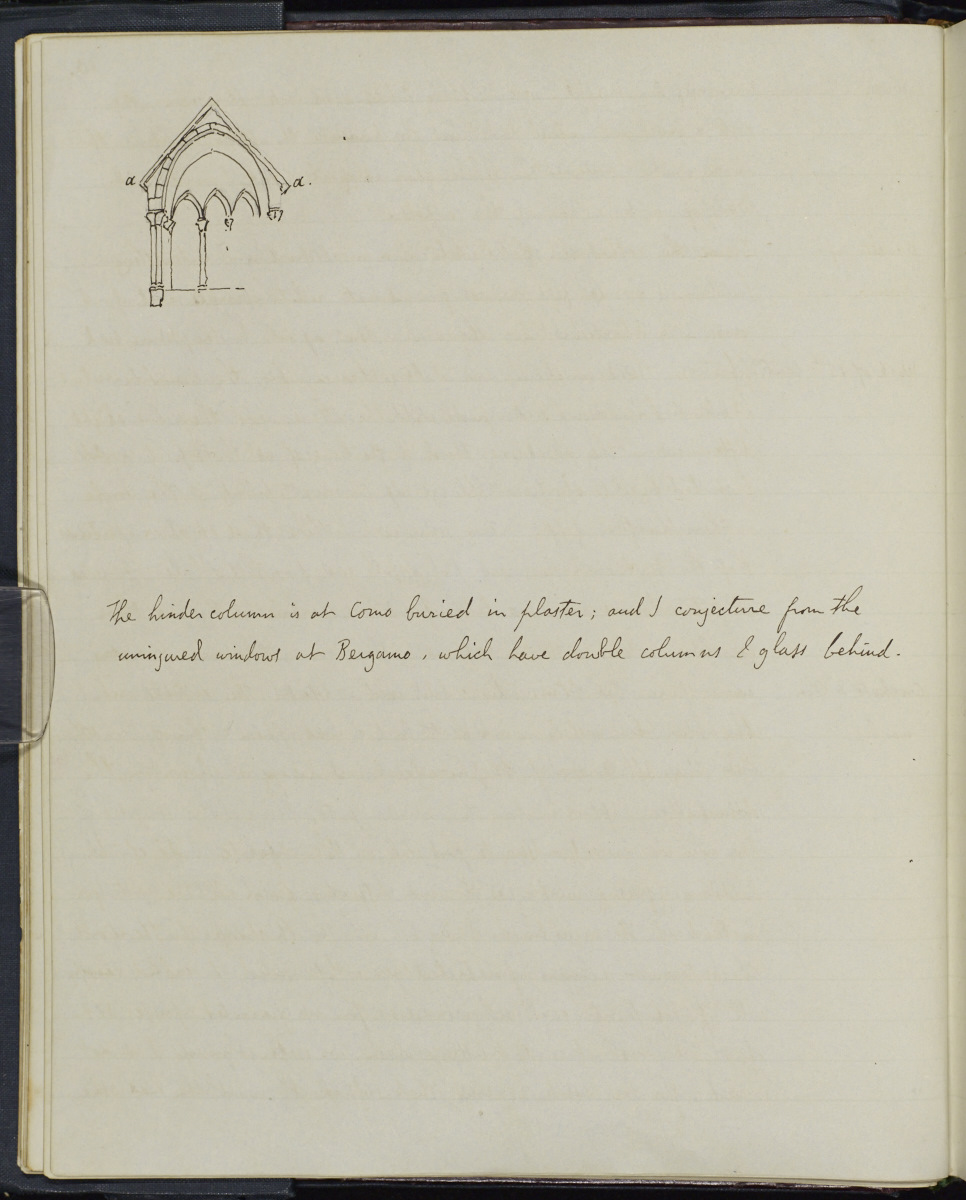 a a.
The hinder column is at Como buried in plaster; and I conjecture from the
uninjured windows at Bergamo, which have double columns & glass behind.